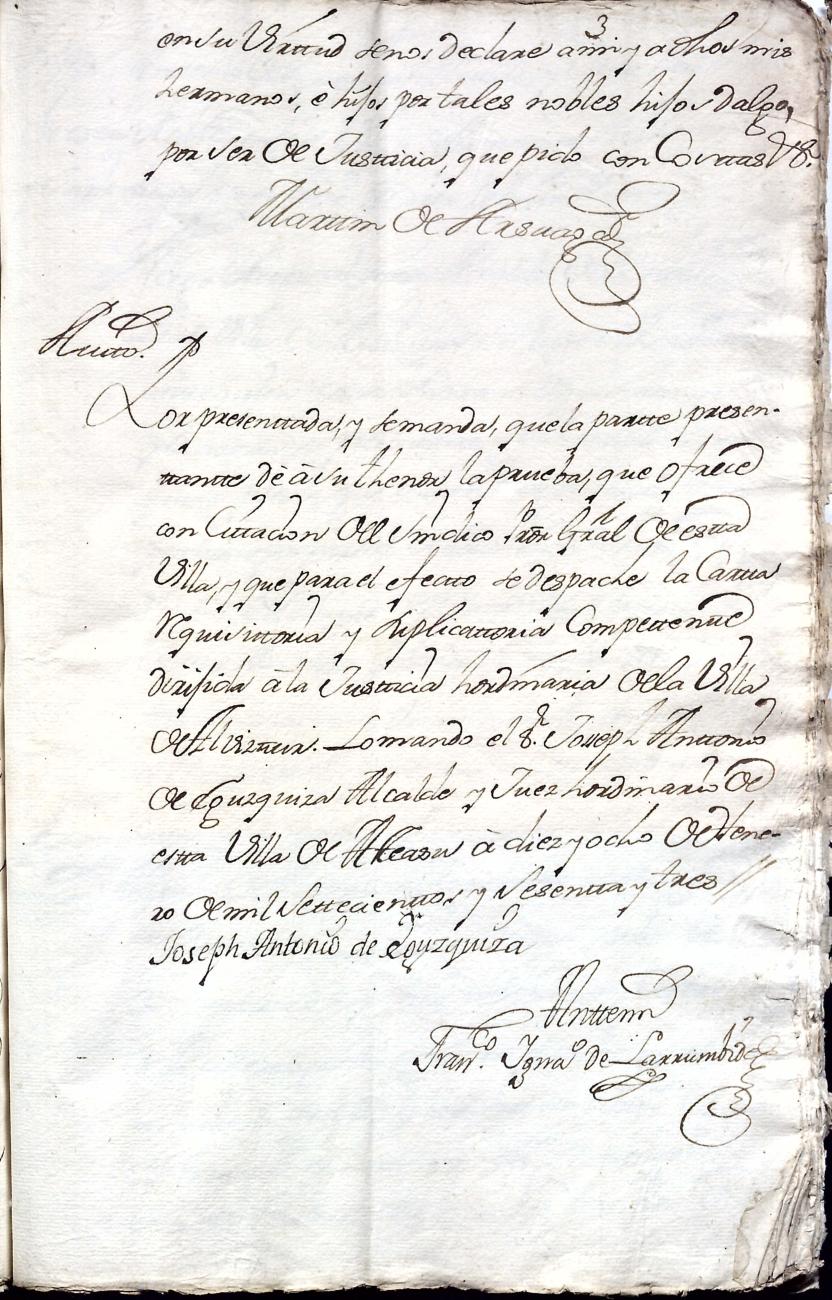 3
en su Virttud se nos declare a mi y a dhos mis
hermanos, è hijos por tales nobles hijos dalgo,
por ser de Justticia, que pido con Costtas
Marttin de
Autto.
Por presenttada, y demanda, que la partte presen-
ttantte dè à su thenor la prueba, que ofrece
con Cittacion del Sindico Pror Gral de estta
Villa, y que para el efectto se despache la Cartta
rrequisittoria y suplicattoria Compettentte
dirijida à la Justticia hordinaria de la Villa
de Alvizttur. Lo mando el Sr. Joseph Anttonio
de Eguzquiza Alcalde y Juez hordinario de
estta Villa de à diez y ocho de Hene-
ro de mil Settecienttos y Sesentta y tres //
Joseph Antonio de Eguzquiza
Anttemi
Franco. Ignao de Larrumbide